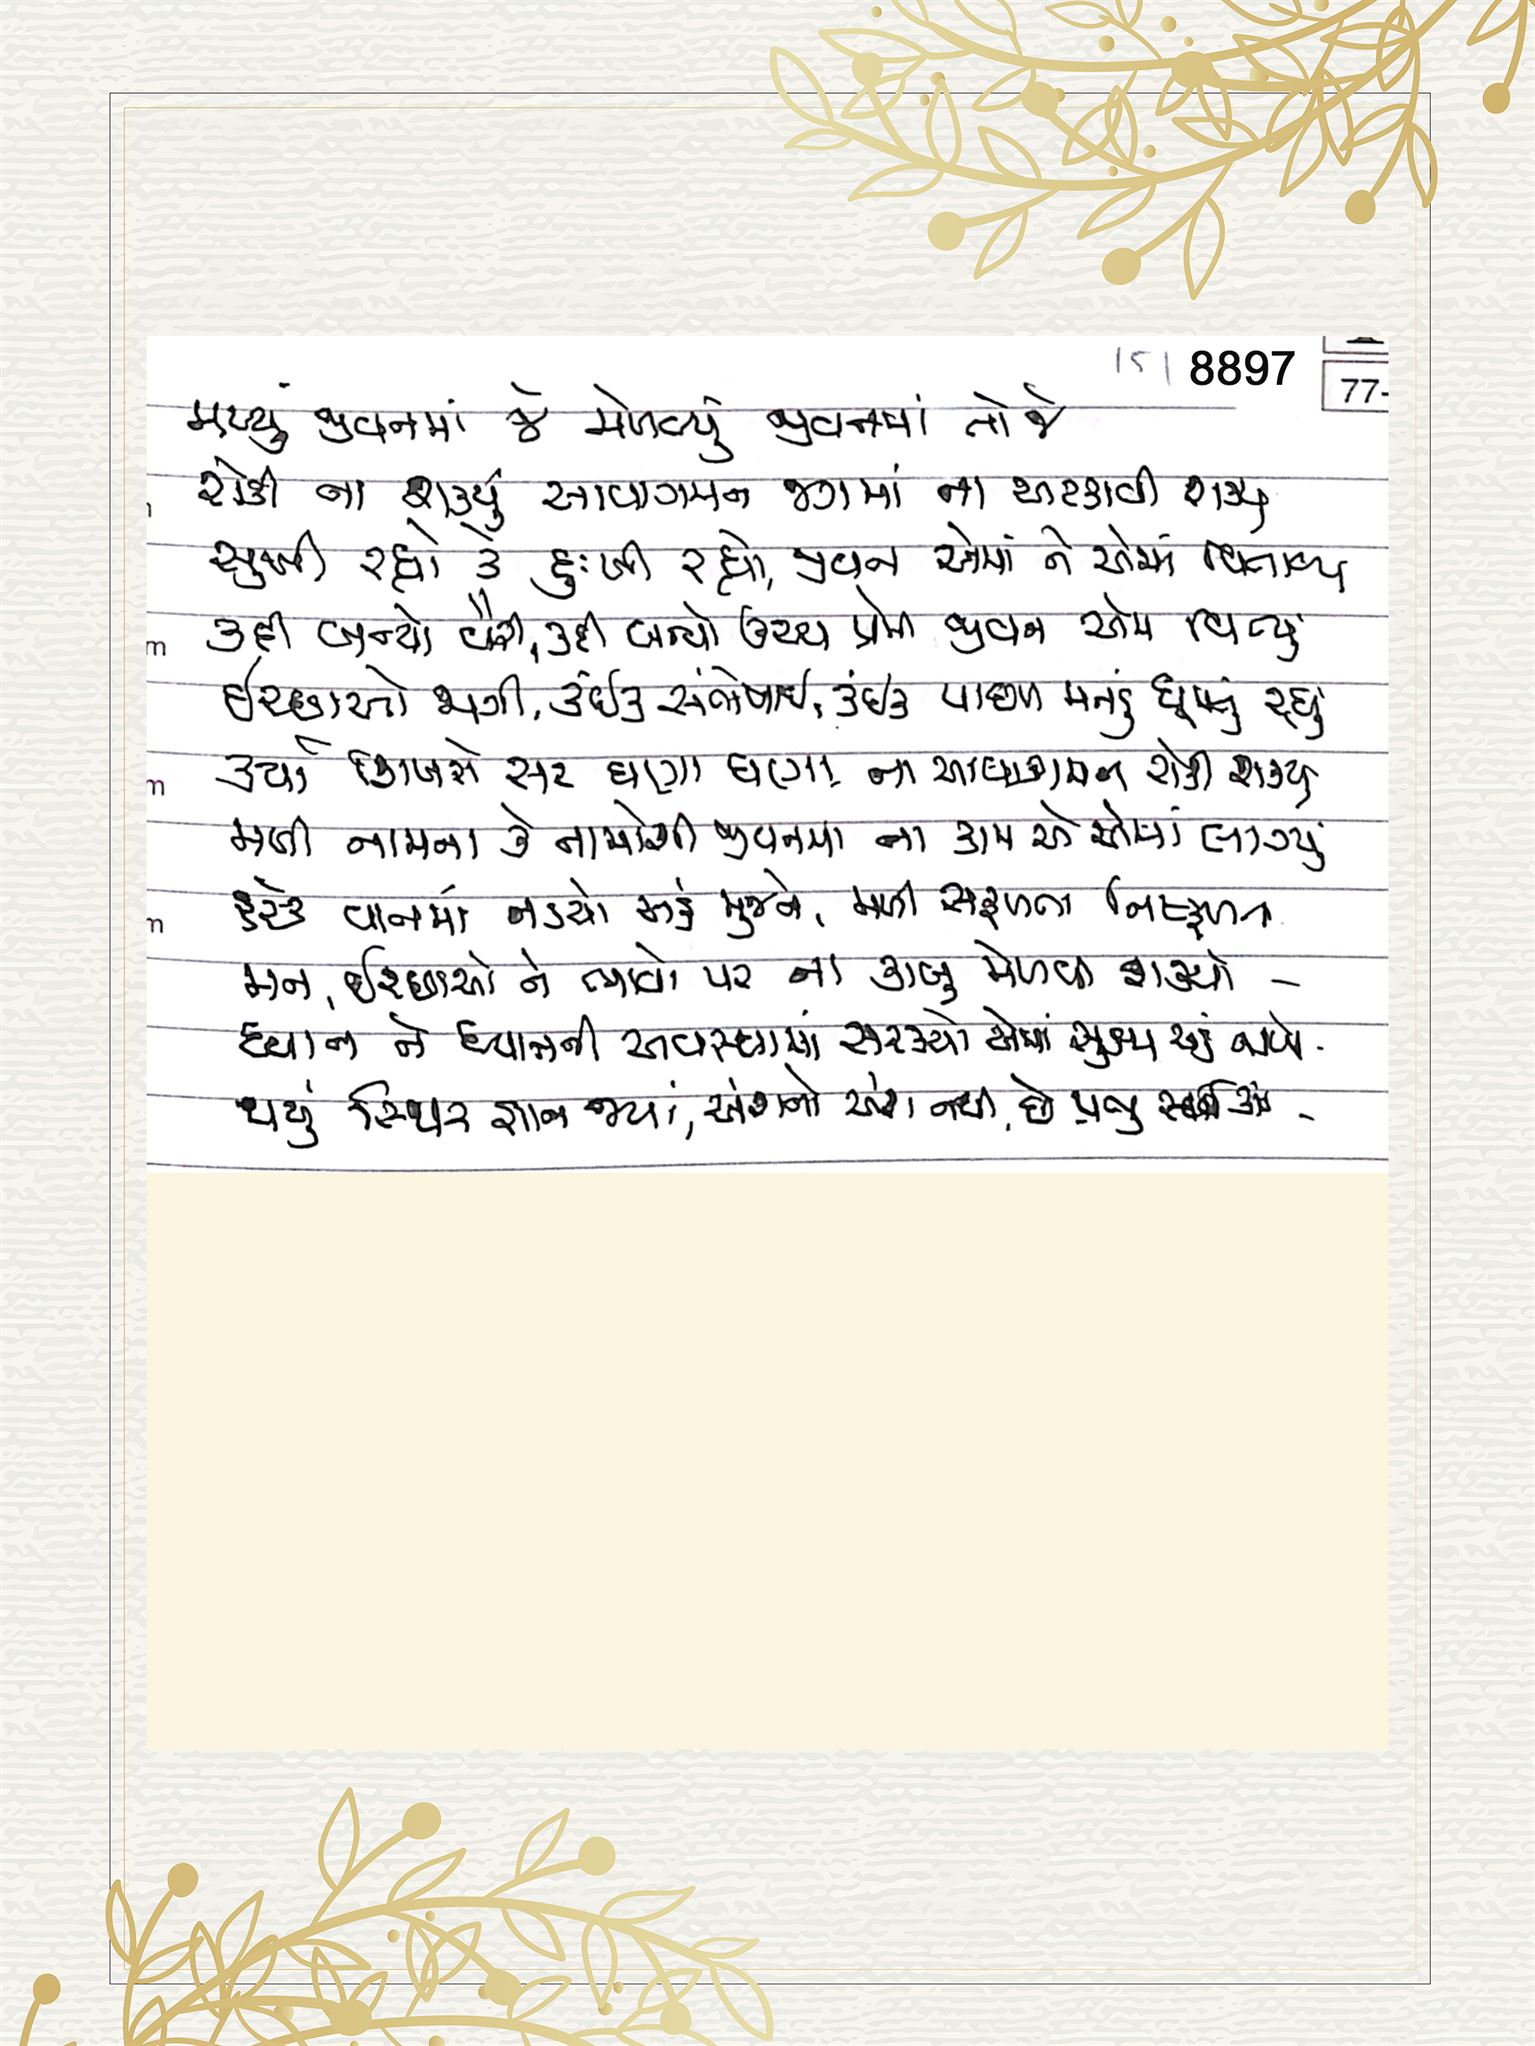 151 8897
77-
મળ્યું જીવનમાં જે મેળવ્યું જીવનમાં તો જે
રોકી ના શક્યું આવાગમન જગમાં ના અટકાવી શક્યુ
સુખી રહ્યો કે દુઃખી રહ્યો, જીવન એમાં ને એમાં વિતાવ્ય
કદી બન્યો વૈરી, કદી બન્યો ઉચ્ચ પ્રેમી જીવન એમ વિત્યું
ઈચ્છાઓ જાગી, કંઈક સંતોષાઈ, કંઈક પાછળ મનડું ઘૂમતું રહ્યું
કર્યા સર ઘણા ઘણા ના આવાગમન રોકી શક્યુ
મળી નામના કે નામોશી જીવનમા ના કામ એ એમાં લાગ્યું
હરેક વાતમાં નડયો અહં મુજને, મળી સફળતા નિષ્ફળતા
મન, ઈચ્છાઓ ને ભાવો પર ના કાબુ મેળવી શક્યો -
ધ્યાન ને ધ્યાનની અવસ્થામાં સરક્યો એમાં સુક્ષ્મ અહં
થયું સ્થિર જ્ઞાન જ્યાં, અંશનો અંશ નથી, છે પ્રભુ -